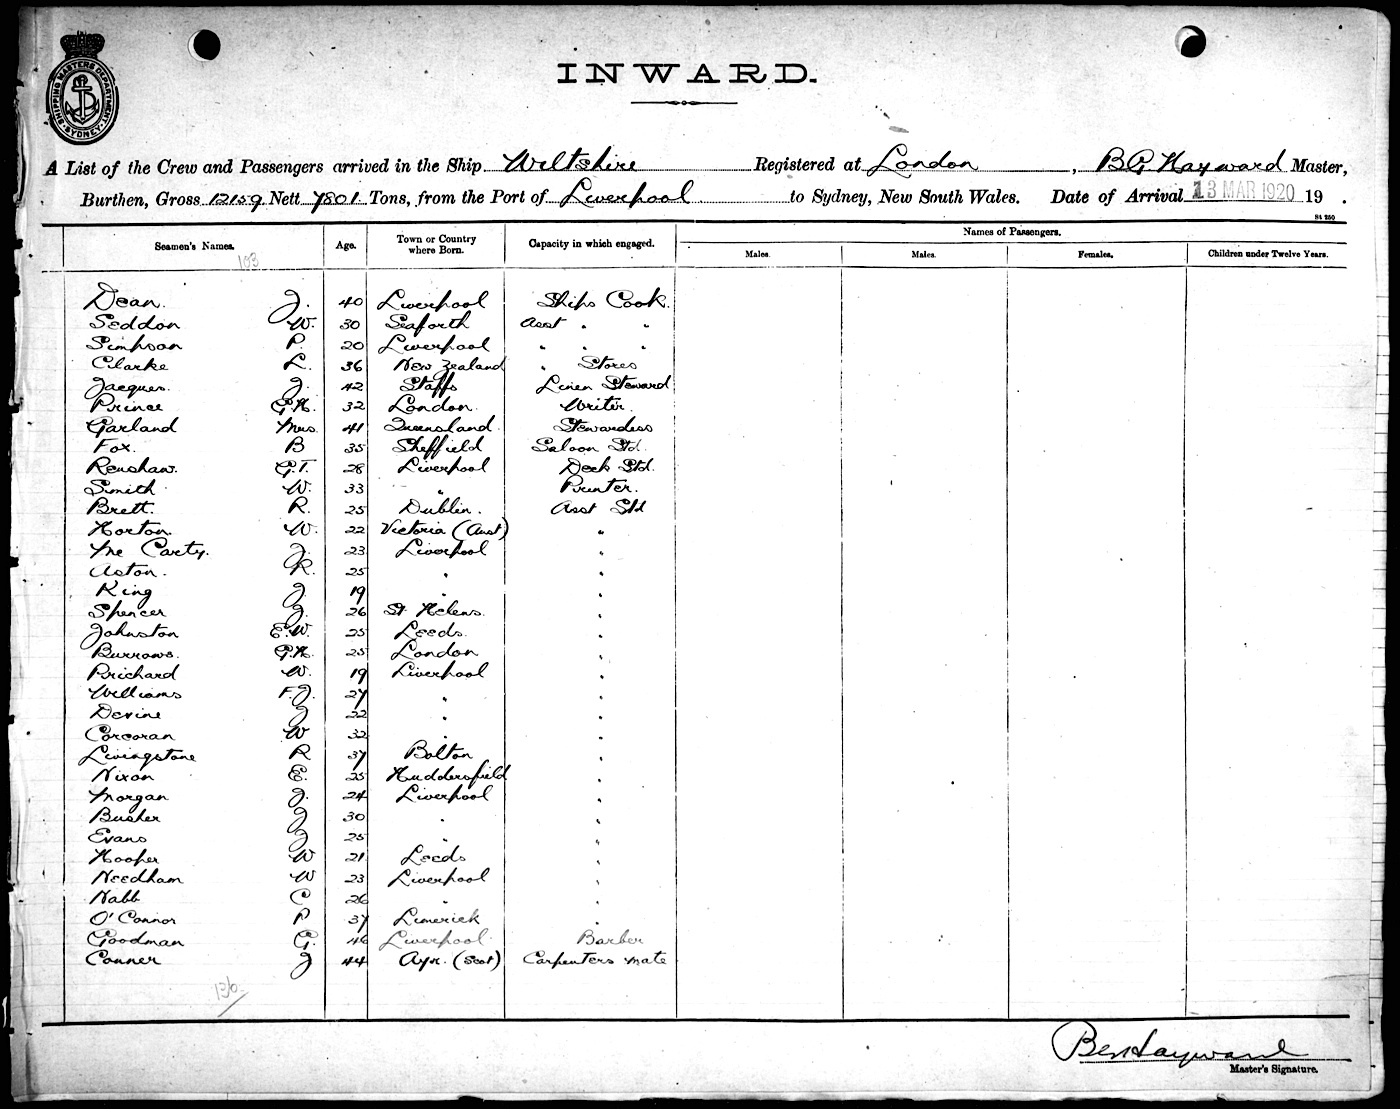 SHIPPING MASTERS DEPARTMENT. SYDNEY
INWARD.
A List of the Crew and Passengers arrived in the Ship Wiltshire Registered at London, B.G. Hayward Master,
Burthen, Gross 12159 Nett 7801 Tons, from the Port of Liverpool to Sydney, New South Wales. Date of Arrival 13 MAR 1920 19 .
St 250
Seamen's Names. Age. Town or Country where Born. Capacity in which engaged. Names of Passengers.
Males. Males. Females. Children under Twelve Years.
103
Dean. J. 40 Liverpool Ships Cook.
Seddon W. 30 Seaforth Asst " "
Simpson P. 20 Liverpool " " "
Clarke L. 36 New Zealand " Stores
Jacques. J. 42 Staffs Linen Steward
Prince G.H. 32 London. Writer.
Garland Mrs. 41 Queensland. Stewardess
Fox. B 35 Sheffield Saloon Std.
Renshaw. G.T. 28 Liverpool Deck Std.
Smith W. 33 " Printer.
Brett. R. 25 Dublin. Asst Std
Horton. W. 22 Victoria (Aust) "
Mc Carty. J. 23 Liverpool "
Aston. R. 25 " "
King J. 19 " "
Spencer J. 26 St Helens. "
Johnston E.W. 25 Leeds. "
Burrows. G.H. 25 London "
Prichard W. 19 Liverpool "
Williams F.J. 27 " "
Devine J 22 " "
Corcoran W 32 " "
Livingstone R 37 Bolton "
Nixon E. 25 Huddersfield "
Morgan J. 24 Liverpool "
Busher J 30 " "
Evans J 25 " "
Hooper W 21 Leeds "
Needham W 23 Liverpool "
Nabb C 26 " "
O'Connor P 37 Limerick "
Goodman G. 46 Liverpool Barber
Conner J 44 Ayr. (Scot) Carpenters mate
136
B G Hayward
Master's Signature.